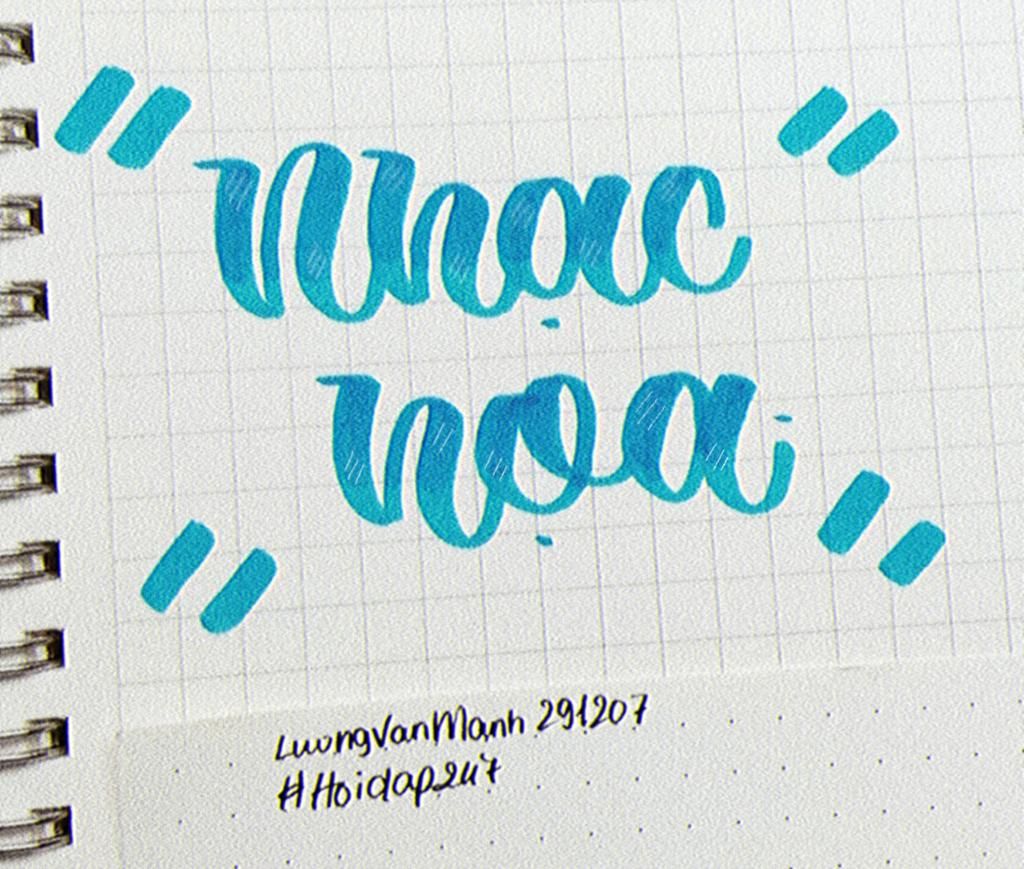 "Nhạc
họa"
LuongVanManh 291207
#Hoidap247